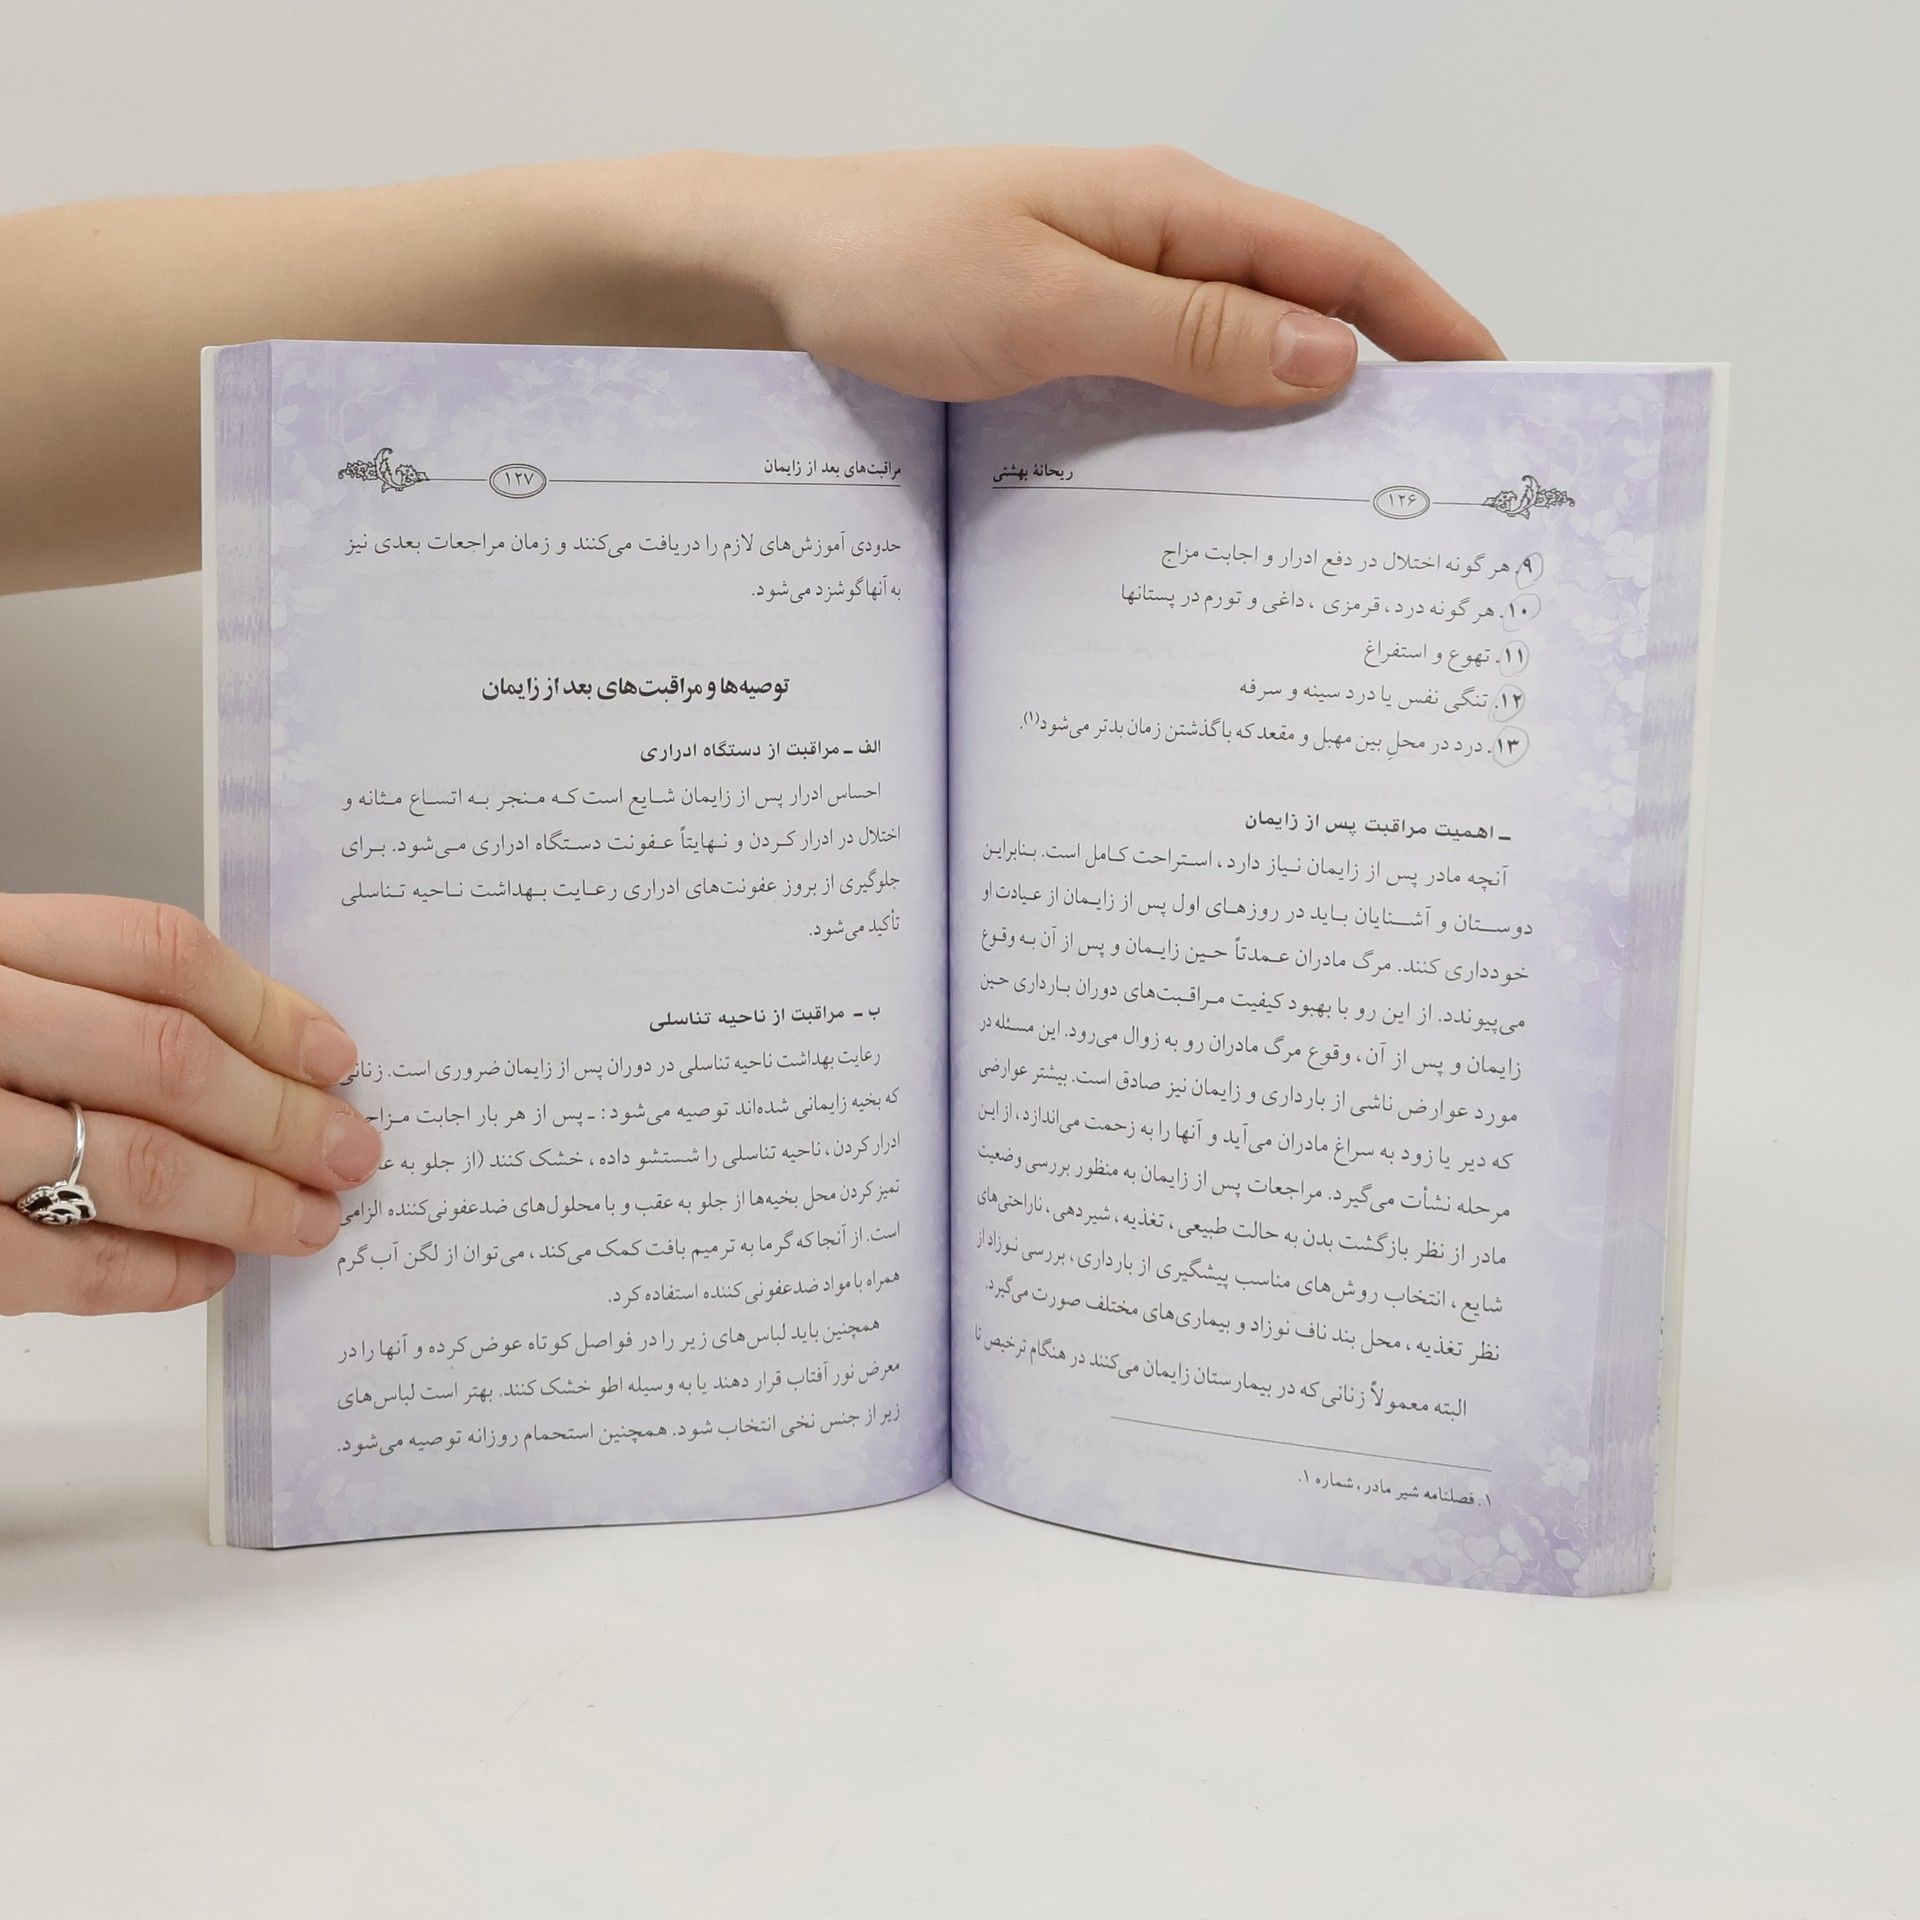 ریحانهٔ بهشتی
۱۲۶
۹. هر گونه اختلال در دفع ادرار و اجابت مزاج
۱۰. هر گونه درد، قرمزی، داغی و تورم در پستانها
۱۱. تهوع و استفراغ
۱۲. تنگی نفس یا درد سینه و سرفه
۱۳. درد در محلِ بین مهبل و مقعد که با گذشتن زمان بدتر می‌شود(۱).
ـ اهمیت مراقبت پس از زایمان
آنچه مادر پس از زایمان نیاز دارد، استراحت کامل است. بنابراین
دوستان و آشنایان باید در روزهای اول پس از زایمان از عیادت او
خودداری کنند. مرگ مادران عمدتاً حین زایمان و پس از آن به وقوع
می‌پیوندد. از این رو با بهبود کیفیت مراقبت‌های دوران بارداری حین
زایمان و پس از آن، وقوع مرگ مادران رو به زوال می‌رود. این مسئله در
مورد عوارض ناشی از بارداری و زایمان نیز صادق است. بیشتر عوارضی
که دیر یا زود به سراغ مادران می‌آید و آنها را به زحمت می‌اندازد، از این
مرحله نشأت می‌گیرد. مراجعات پس از زایمان به منظور بررسی وضعیت
مادر از نظر بازگشت بدن به حالت طبیعی، تغذیه، شیردهی، ناراحتی‌های
شایع، انتخاب روش‌های مناسب پیشگیری از بارداری، بررسی نوزاد از
نظر تغذیه، محل بند ناف نوزاد و بیماری‌های مختلف صورت می‌گیرد.
البته معمولاً زنانی که در بیمارستان زایمان می‌کنند در هنگام ترخیص تا
۱. فصلنامه شیر مادر، شماره ۱.
مراقبت‌های بعد از زایمان
۱۲۷
حدودی آموزش‌های لازم را دریافت می‌کنند و زمان مراجعات بعدی نیز
به آنها گوشزد می‌شود.
توصیه‌ها و مراقبت‌های بعد از زایمان
الف ـ مراقبت از دستگاه ادراری
احساس ادرار پس از زایمان شایع است که منجر به اتساع مثانه و
اختلال در ادرار کردن و نهایتاً عفونت دستگاه ادراری می‌شود. برای
جلوگیری از بروز عفونت‌های ادراری رعایت بهداشت ناحیه تناسلی
تأکید می‌شود.
ب ـ مراقبت از ناحیه تناسلی
رعایت بهداشت ناحیه تناسلی در دوران پس از زایمان ضروری است. زنانی
که بخیه زایمانی شده‌اند توصیه می‌شود: ـ پس از هر بار اجابت
ادرار کردن، ناحیه تناسلی را شستشو داده، خشک کنند (از جلو به
تمیز کردن محل بخیه‌ها از جلو به عقب و با محلول‌های ضدعفونی‌کننده الزامی
است. از آنجا که گرما به ترمیم بافت کمک می‌کند، می‌توان از لگن آب گرم
همراه با مواد ضدعفونی کننده استفاده کرد.
همچنین باید لباس‌های زیر را در فواصل کوتاه عوض کرده و آنها را در
معرض نور آفتاب قرار دهند یا به وسیله اطو خشک کنند. بهتر است لباس‌های
زیر از جنس نخی انتخاب شود. همچنین استحمام روزانه توصیه می‌شود.